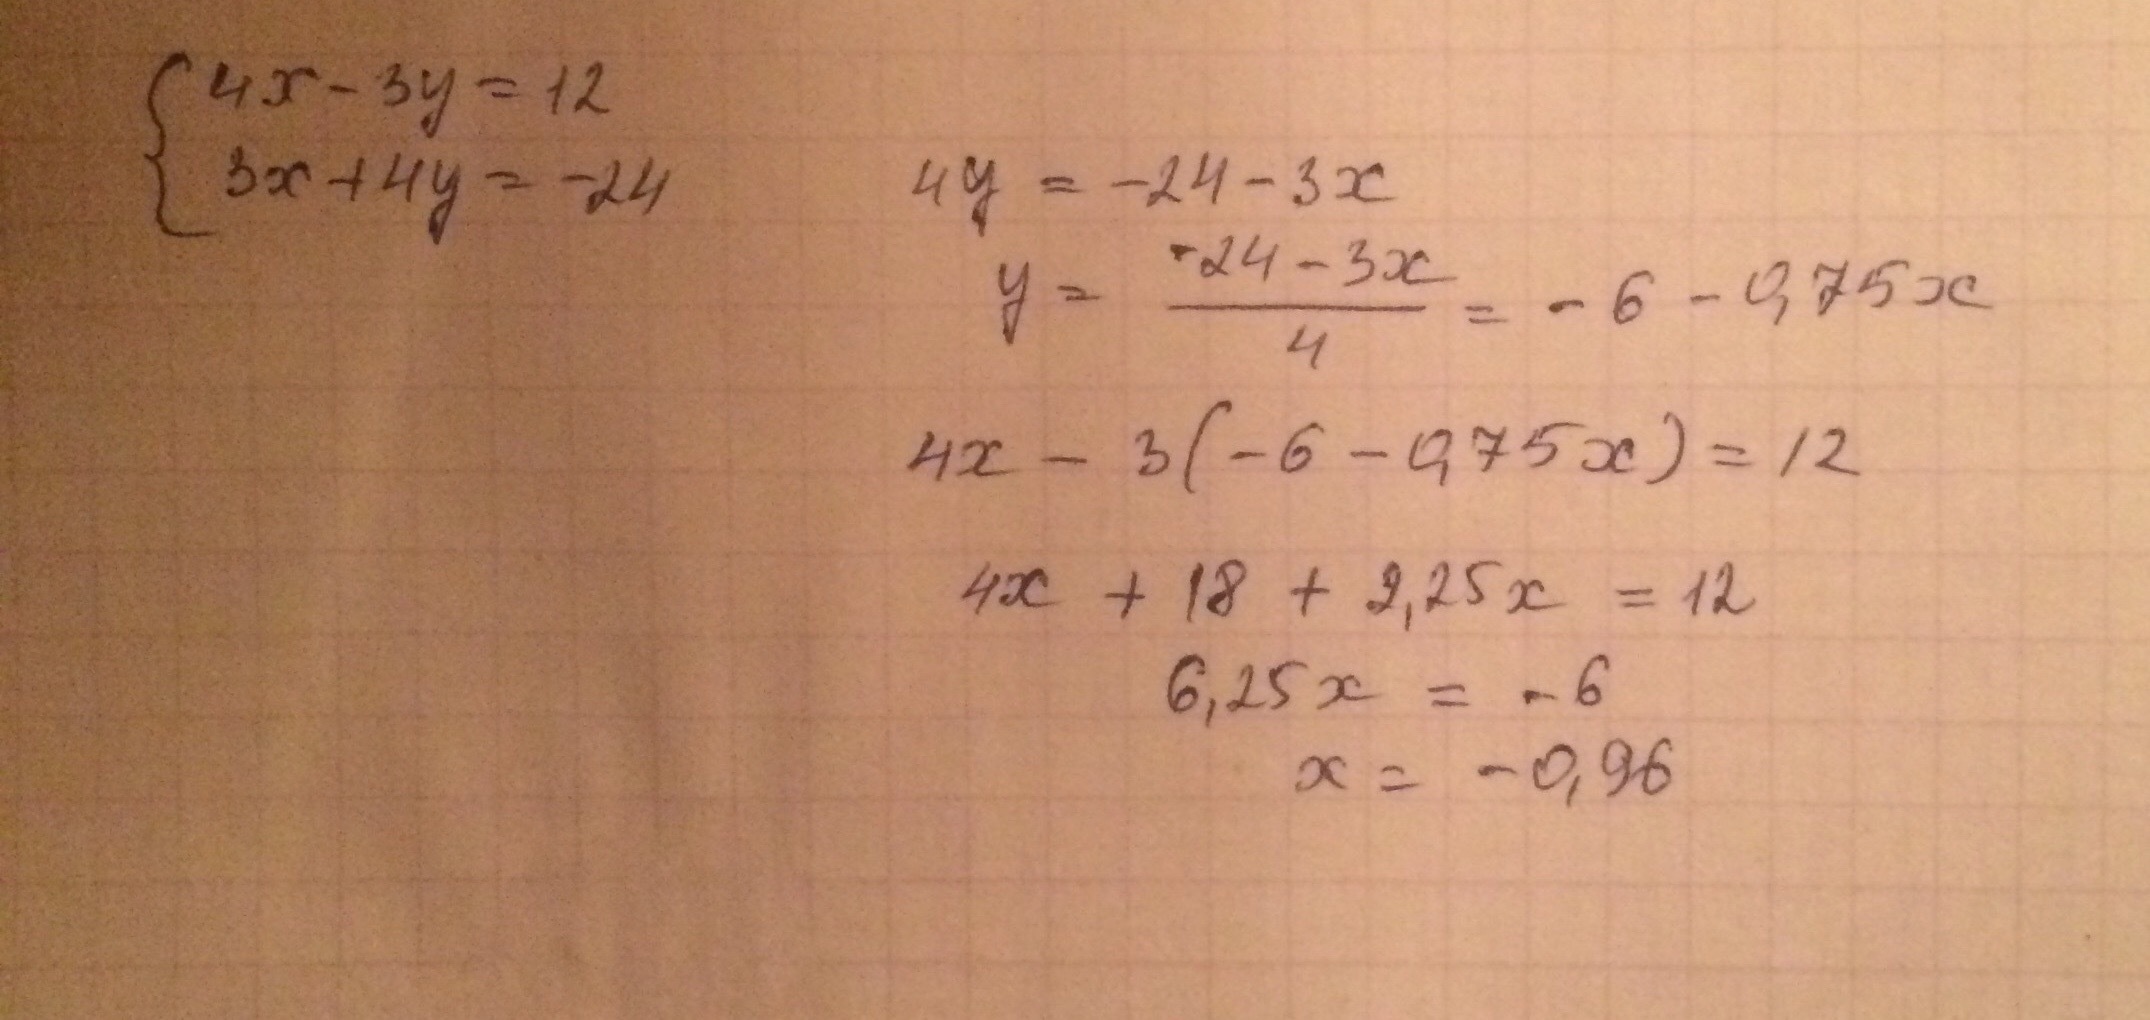 4x - 3y = 12
3x + 4y = -24
4y = -24 - 3x
y = \frac{-24 - 3x}{4} = -6 - 0,75x
4x - 3(-6 - 0,75x) = 12
4x + 18 + 2,25x = 12
6,25x = -6
x = -0,96